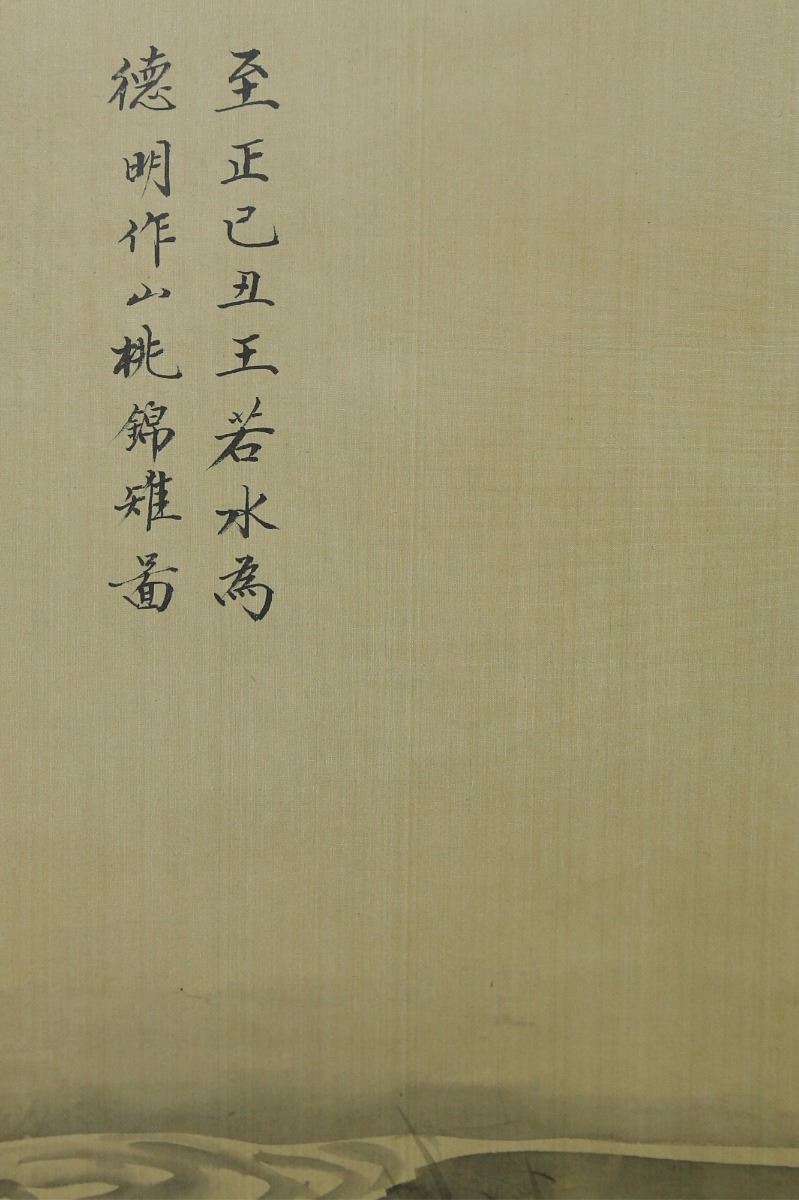 至正己丑王若水為
德明作山桃錦雉畵